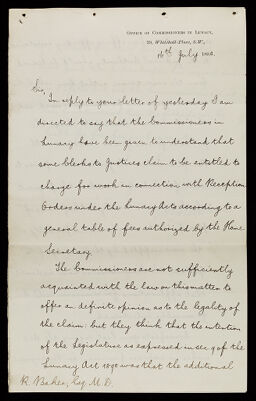 OFFICE OF COMMISSIONERS IN LUNACY,
19, Whitehall-Place, S.W.,
16th July 1892.
Sir,
In reply to your letter of yesterday I am
directed to say that the Commissioners in
Lunacy have been given to understand that
some Clerks to Justices claim to be entitled to
charge for work in connection with Reception
Orders under the Lunacy Acts according to a
general table of fees authorized by the Home
Secretary.
The Commissioners are not sufficiently
acquainted with the law on this matter to
offer an definite opinion as to the legality of
the claim, but they think that the intention
of the Legislature as expressed in sec 9 of the
Lunacy Act 1890 was that the additional
R. Baker, Esq. M.D.